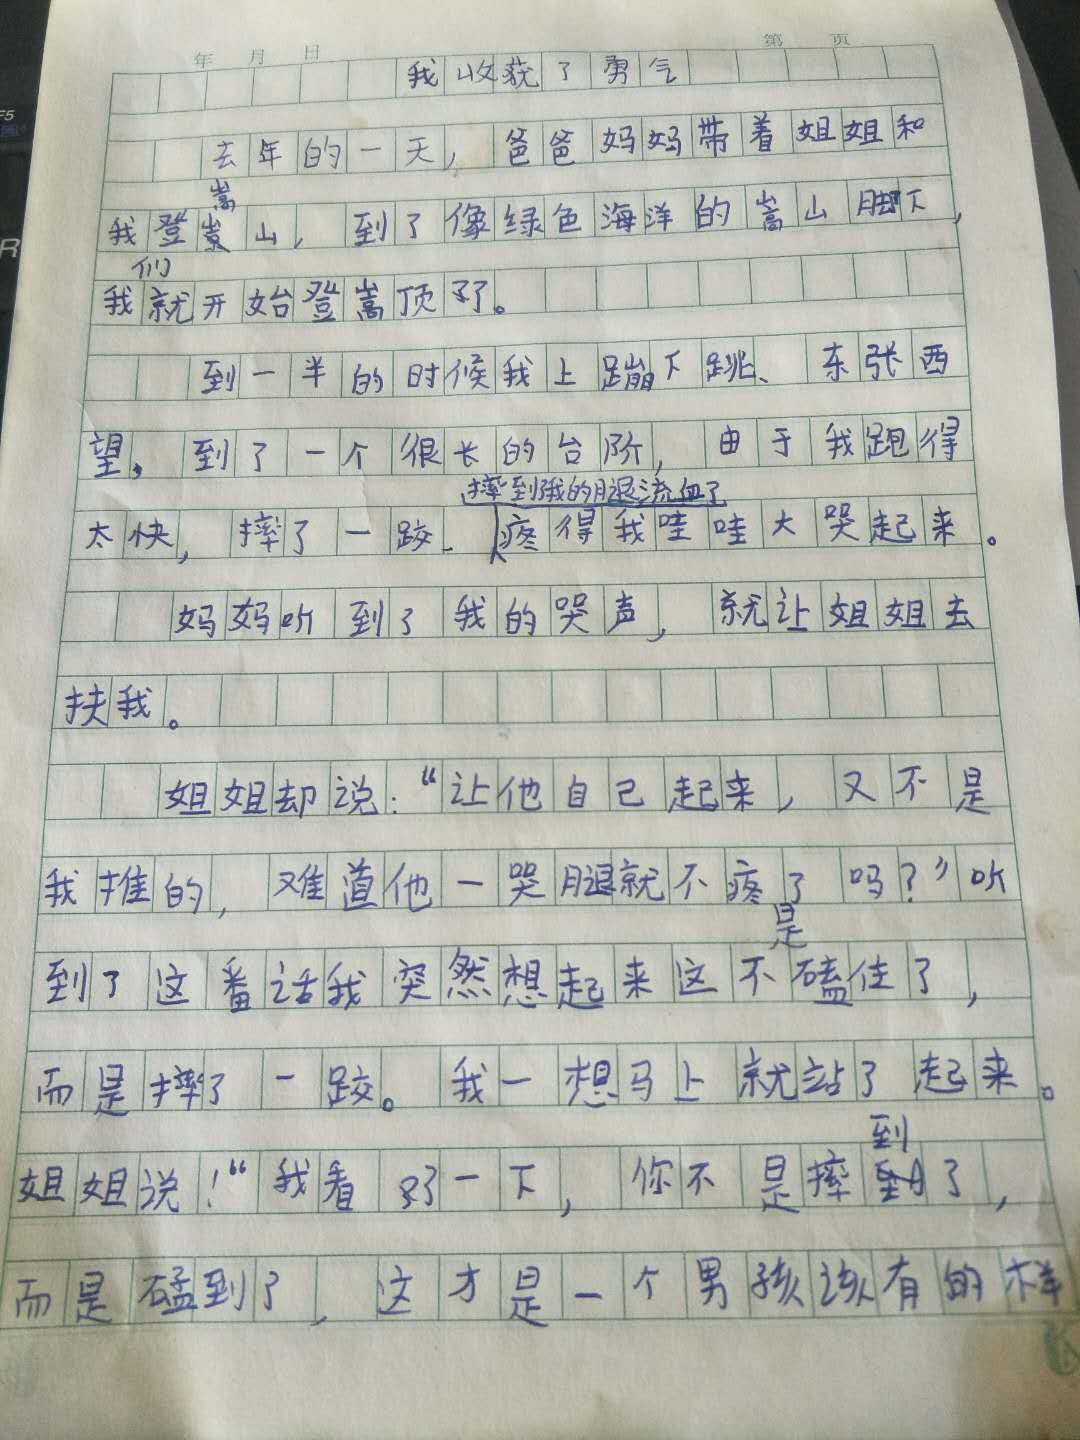 年 月 日 第 页
我收获了勇气
去年的一天，爸爸妈妈带着姐姐和
嵩
我登山，到了像绿色海洋的嵩山脚下，
们
我就开始登嵩顶了。
到一半的时候我上蹦下跳、东张西
望，到了一个很长的台阶，由于我跑得
摔到了我的腿流血了
太快，摔了一跤、疼得我哇哇大哭起来。
妈妈听到了我的哭声，就让姐姐去
扶我。
姐姐却说：“让他自己起来，又不是
我推的，难道他一哭腿就不疼了吗？”听
是
到了这番话我突然想起来这不磕住了，
而是摔了一跤。我一想马上就站了起来。
到
姐姐说！“我看了一下，你不是摔了，
而是磕到了，这才是一个男孩该有的样
F5
R